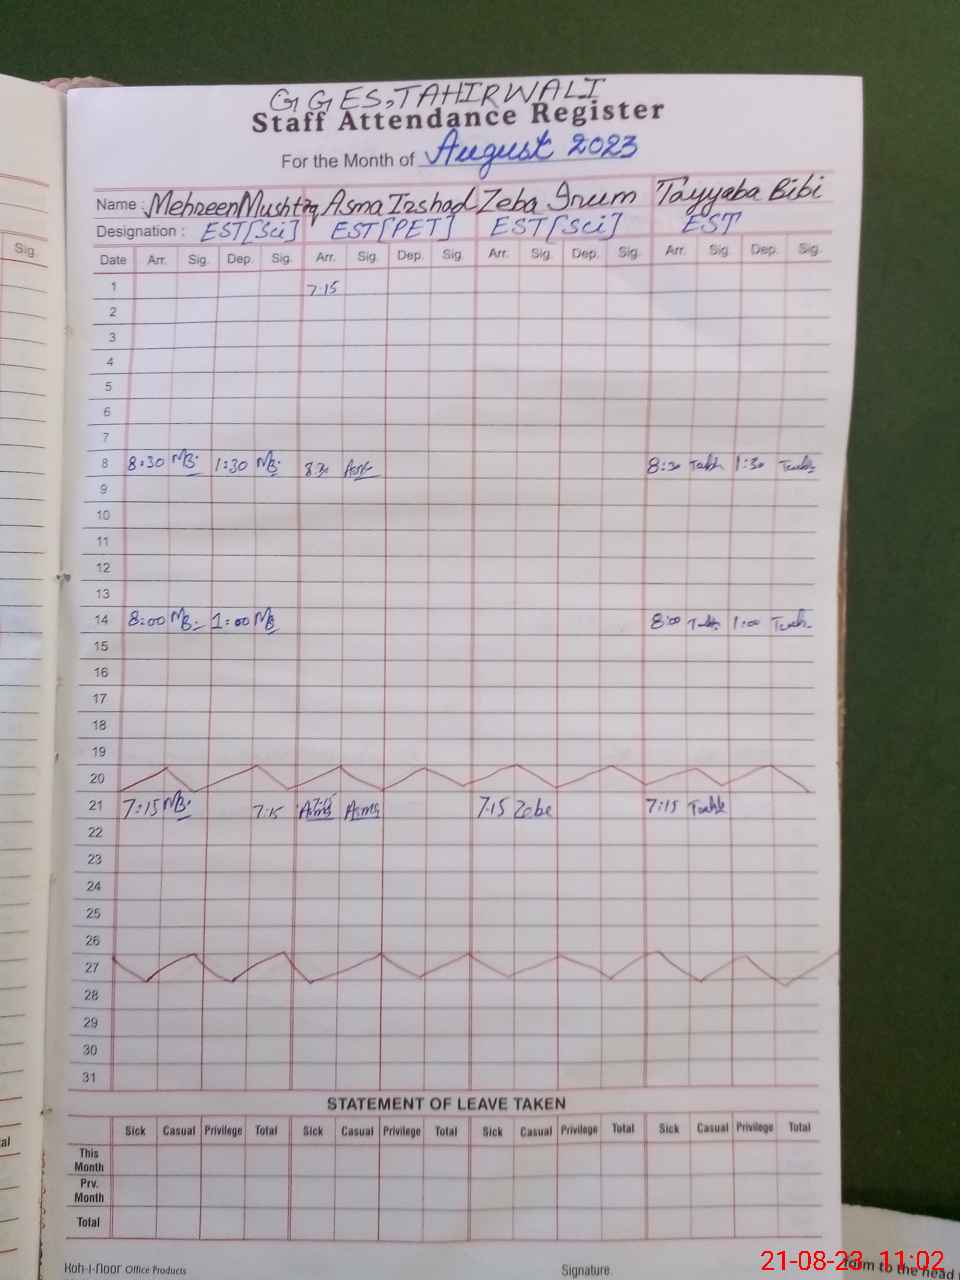 G G ES, TAHIRWALI
Staff Attendance Register
For the Month of August 2023
Name : Mehreen Mushtaq Asma Irshad Zeba Irum Tayyaba Bibi
Designation : EST[Sci] EST[PET] EST[Sci] EST
Sig.
Date Arr. Sig. Dep. Sig. Arr. Sig. Dep. Sig. Arr. Sig. Dep. Sig. Arr. Sig. Dep. Sig.
1 7.15
2
3
4
5
6
7
8 8:30 MB. 1:30 MB. 8.30 8:30 1:30
9
10
11
12
13
14 8:00 MB. 1:00 MB 8:00 1:00
15
16
17
18
19
20
21 7:15 MB. 7:15 7:15 Asma Asma 7.15 Zebe 7:15
22
23
24
25
26
27
28
29
30
31
STATEMENT OF LEAVE TAKEN
Sick Casual Privilege Total Sick Casual Privilege Total Sick Casual Privilege Total Sick Casual Privilege Total
This Month
Prv. Month
Total
Koh-I-Noor Office Products
Signature.
form to the head
21-08-23 11:02